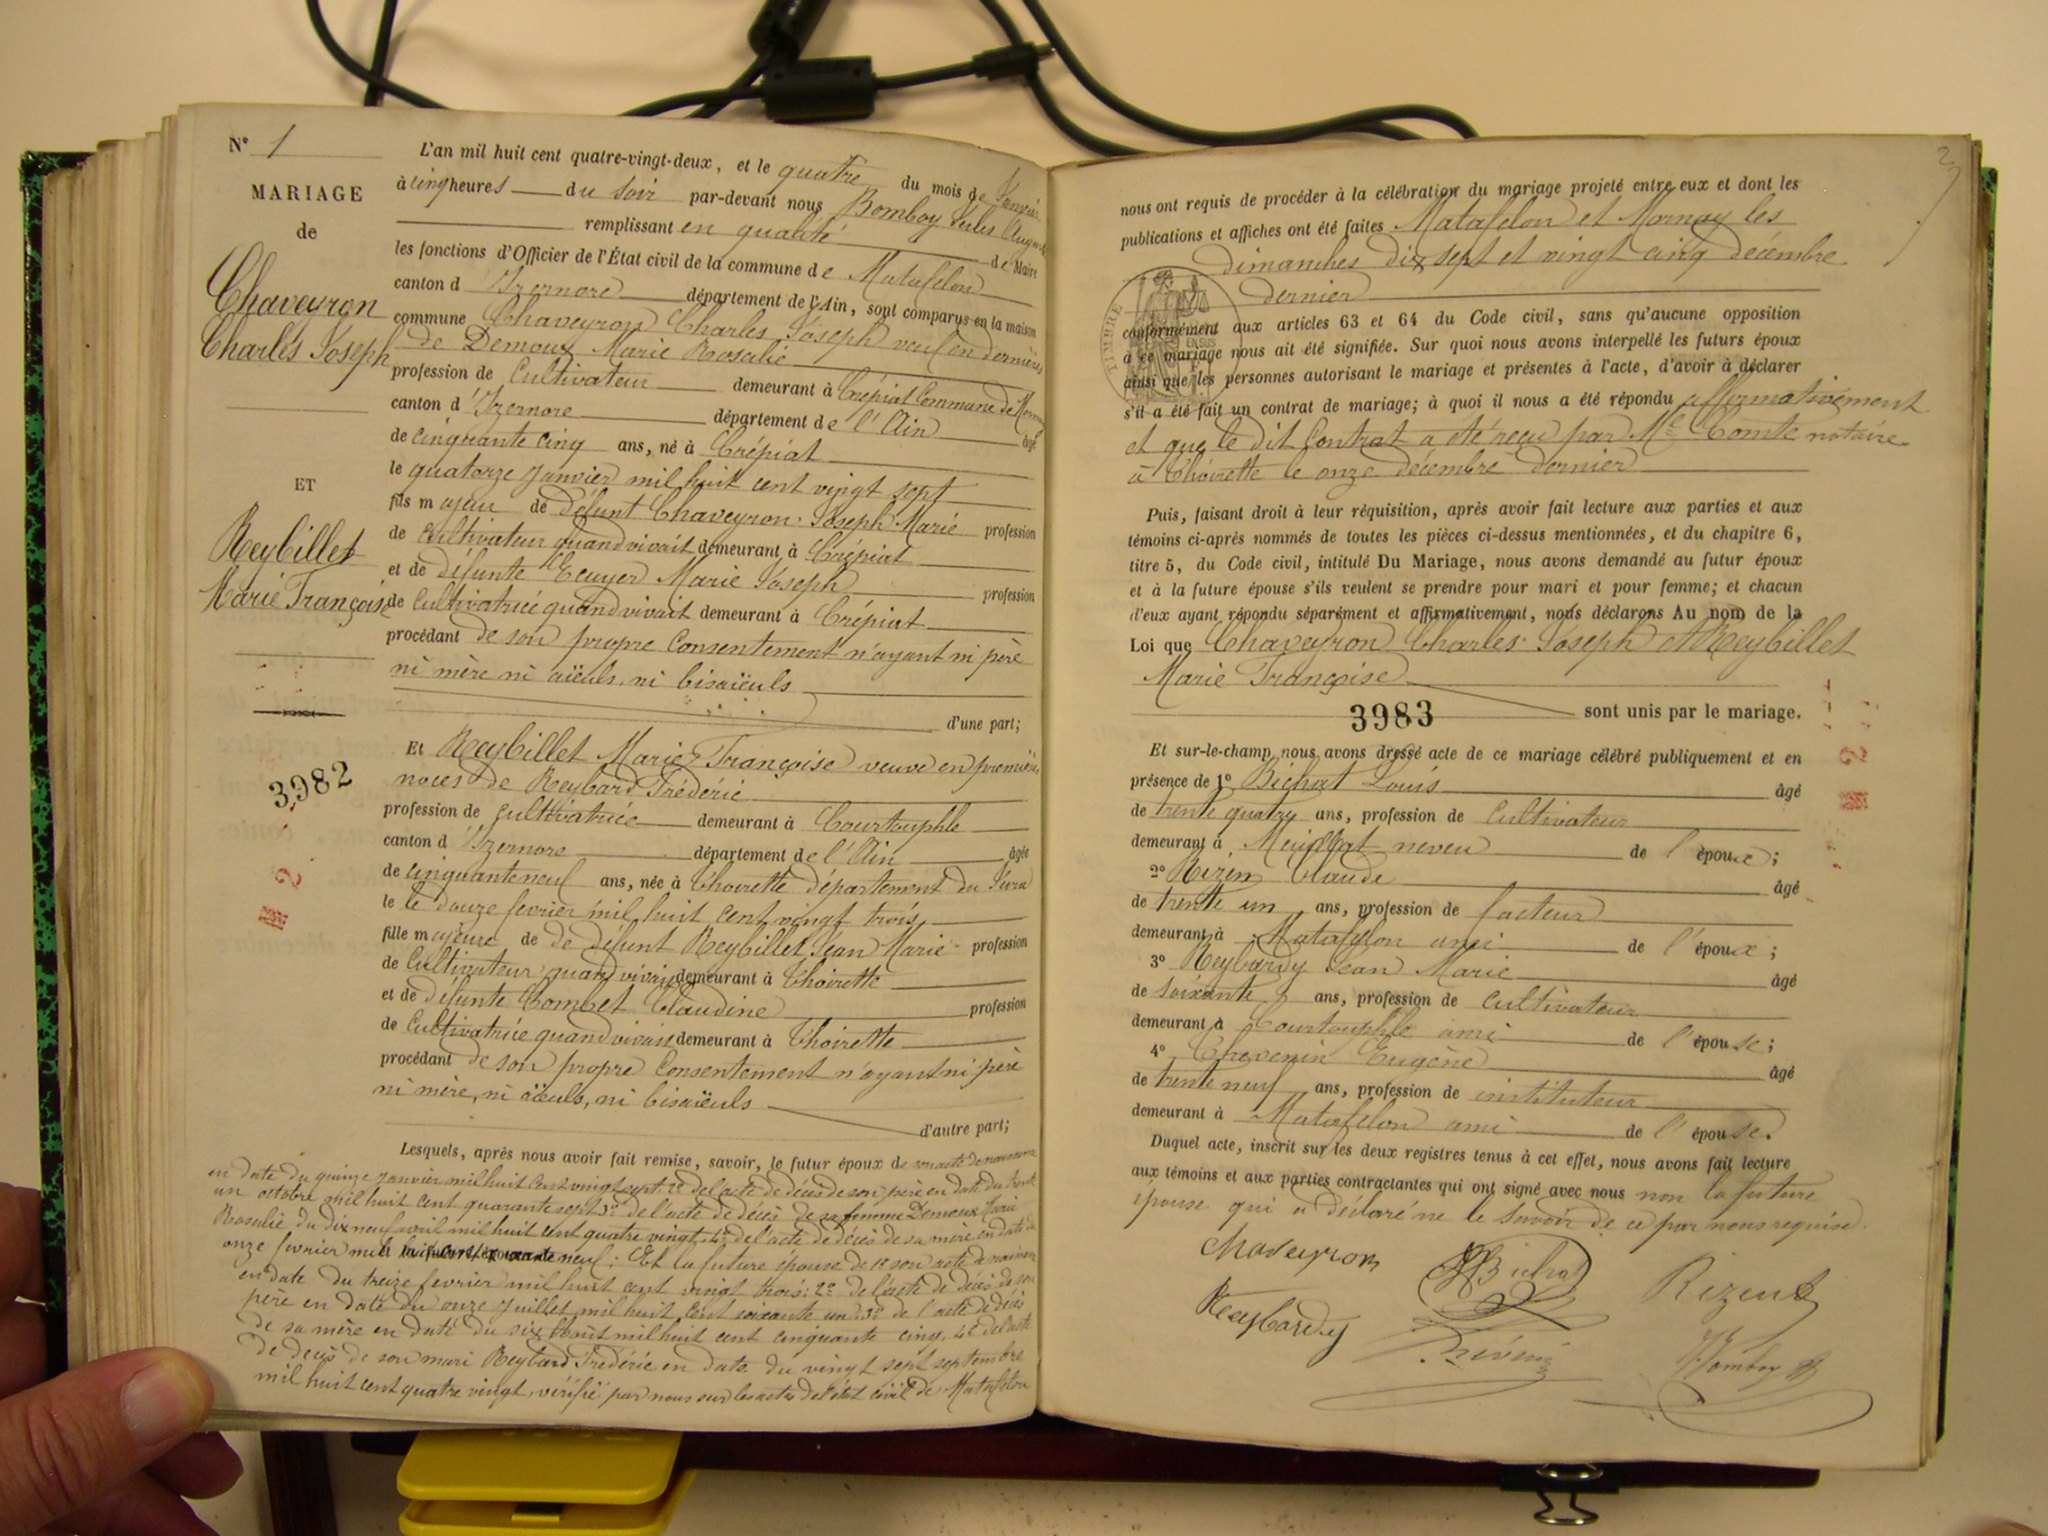 N° 1
MARIAGE
de
Chaveyron
Charles Joseph
ET
Reybillet
Marie Françoise
3982
L'an mil huit cent quatre-vingt-deux, et le quatre du mois de Janvier
à cinq heures du soir par-devant nous Bomboy Jules August
remplissant en qualité de Maire
les fonctions d'Officier de l'État civil de la commune de Matafelon
canton d'Izernore département de l'Ain, sont comparus en la maison
commune Chaveyron Charles Joseph veuf en dernières
de Demoux Marie Rosalie
profession de Cultivateur demeurant à Crépiat Commune de
canton d'Izernore département de l'Ain âgé
de cinquante cinq ans, né à Crépiat
le quatorze Janvier mil huit cent vingt sept
fils majeur de défunt Chaveyron Joseph Marie profession
de Cultivateur quand vivait demeurant à Crépiat
et de défunte Ecuyer Marie Joseph profession
de Cultivatrice quand vivait demeurant à Crépiat
procédant de son propre Consentement n'ayant ni père
ni mère ni aïeuls, ni bisaïeuls
d'une part;
Et Reybillet Marie Françoise veuve en premières
noces de Reybard Frédéric
profession de cultivatrice demeurant à Courtouphle
canton d'Izernore département de l'Ain âgée
de cinquante neuf ans, née à Thoirette département du Jura
le le douze fevrier mil huit cent vingt trois
fille majeure de de défunt Reybillet Jean Marie profession
de Cultivateur quand vivait demeurant à Thoirette
et de défunte Combet Claudine profession
de Cultivatrice quand vivait demeurant à Thoirette
procédant de son propre Consentement n'ayant ni père
ni mère, ni aïeuls, ni bisaïeuls
d'autre part;
Lesquels, après nous avoir fait remise, savoir, le futur époux de son acte de naissance
en date du quinze Janvier mil huit cent vingt sept. 2° de l'acte de décès de son père en date du trente
un octobre mil huit cent quarante sept 3° de l'acte de décès de sa femme Demoux Marie
Rosalie du dix neuf avril mil huit cent quatre vingt. 4° de l'acte de décès de sa mère en date du
onze fevrier mil huit cent neuf: Et la future épouse de 1° son acte de naissance
en date du treize fevrier mil huit cent vingt trois: 2° de l'acte de décès de son
père en date du onze Juillet mil huit cent soixante un: 3° de l'acte de décès
de sa mère en date du six Août mil huit cent cinquante cinq. 4° de l'acte
de décès de son mari Reybard Frédéric en date du vingt sept septembre
mil huit cent quatre vingt, vérifié par nous sur les actes de l'état civil de Matafelon
2
nous ont requis de procéder à la célébration du mariage projeté entre eux et dont les
publications et affiches ont été faites Matafelon et Mornay les
dimanches dix sept et vingt cinq décembre
dernier
TIMBRE
conformément aux articles 63 et 64 du Code civil, sans qu'aucune opposition
à ce mariage nous ait été signifiée. Sur quoi nous avons interpellé les futurs époux
ainsi que les personnes autorisant le mariage et présentes à l'acte, d'avoir à déclarer
s'il a été fait un contrat de mariage; à quoi il nous a été répondu affirmativement
et que le dit Contrat a été reçu par Me Comte notaire
à Thoirette le onze décembre dernier
Puis, faisant droit à leur réquisition, après avoir fait lecture aux parties et aux
témoins ci-après nommés de toutes les pièces ci-dessus mentionnées, et du chapitre 6,
titre 5, du Code civil, intitulé Du Mariage, nous avons demandé au futur époux
et à la future épouse s'ils veulent se prendre pour mari et pour femme; et chacun
d'eux ayant répondu séparément et affirmativement, nous déclarons Au nom de la
Loi que Chaveyron Charles Joseph et Reybillet
Marie Françoise
3983 sont unis par le mariage.
Et sur-le-champ nous avons dressé acte de ce mariage célébré publiquement et en
présence de 1° Bichat Louis âgé
de trente quatre ans, profession de Cultivateur
demeurant à neveu de l'époux;
2° Rizin Claude âgé
de trente un ans, profession de facteur
demeurant à Matafelon ami de l'époux;
3° Reybardy Jean Marie âgé
de soixante ans, profession de cultivateur
demeurant à Courtouphle ami de l'épouse;
4° Thevenin Eugène âgé
de trente neuf ans, profession de instituteur
demeurant à Matafelon ami de l'épouse.
Duquel acte, inscrit sur les deux registres tenus à cet effet, nous avons fait lecture
aux témoins et aux parties contractantes qui ont signé avec nous non la future
épouse qui a déclaré ne le savoir de ce par nous requise.
Chaveyron Bichat
Reybardy